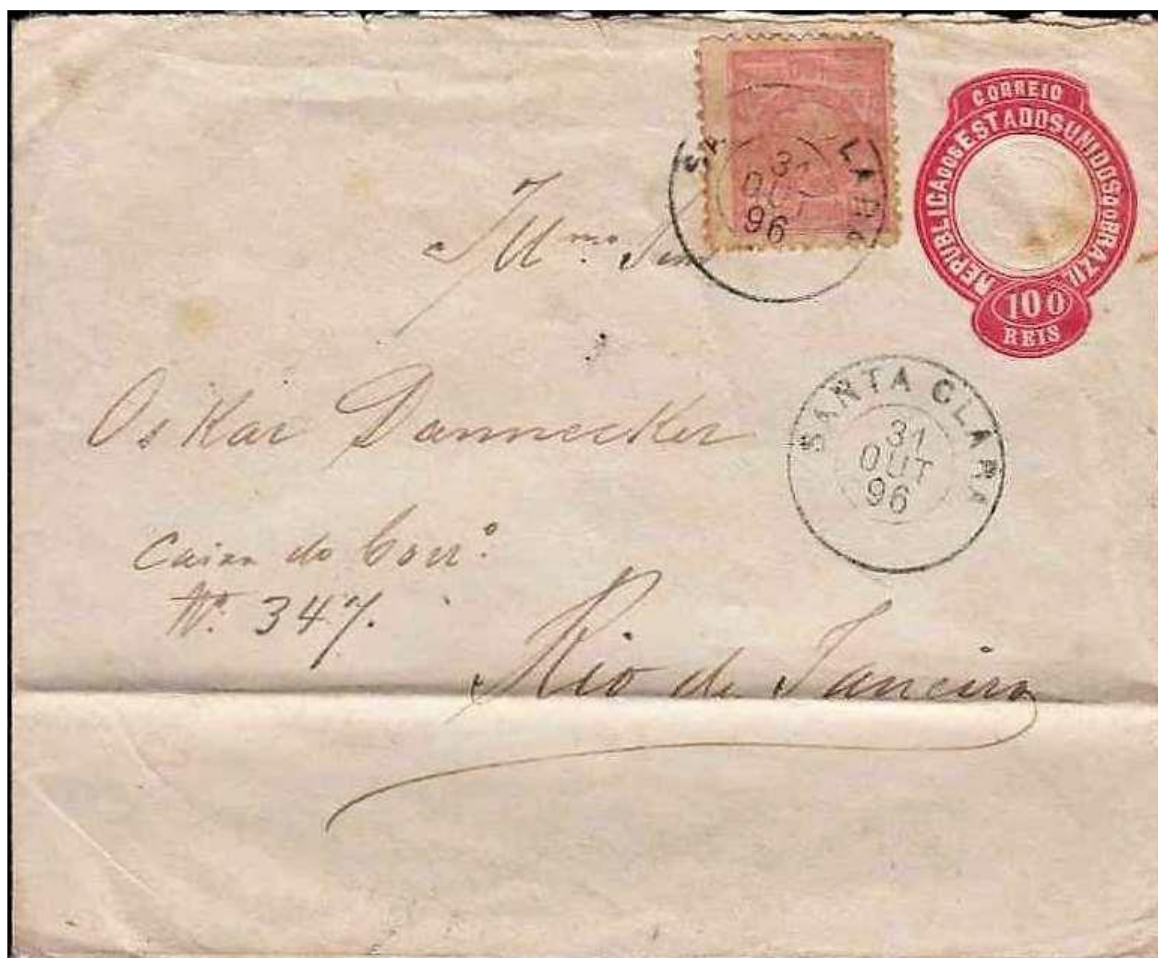 CORREIO
REPUBLICA DOS ESTADOS UNIDOS DO BRAZIL
100
REIS
31
OUT
96
Illmo. Snr
Oskar Dannecker
SANTA CLARA
31
OUT
96
Caixa do Corrº.
Nº. 347.
Rio de Janeiro